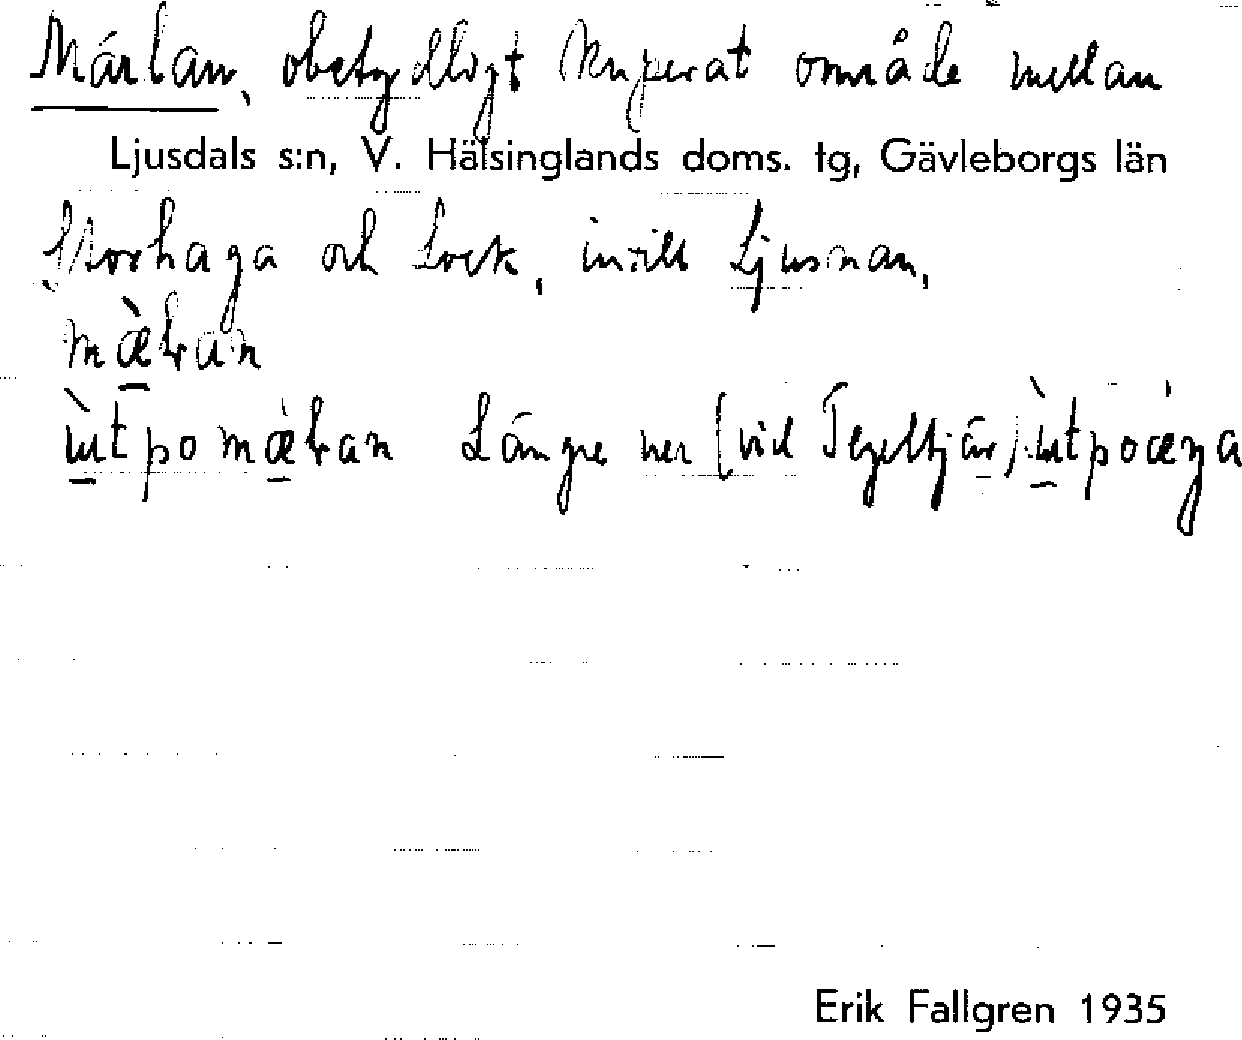 Märlan, obetydligt kuperat område mellan
Ljusdals s:n, V. Hälsinglands doms. tg, Gävleborgs län
Storhaga och Lock, intill Ljusnan,
mæ̀ɽan
ɯ̀tpo mæ̀ɽan Längre ner (vid Tegeltjär) ɯ̀tpo
Erik Fallgren 1935